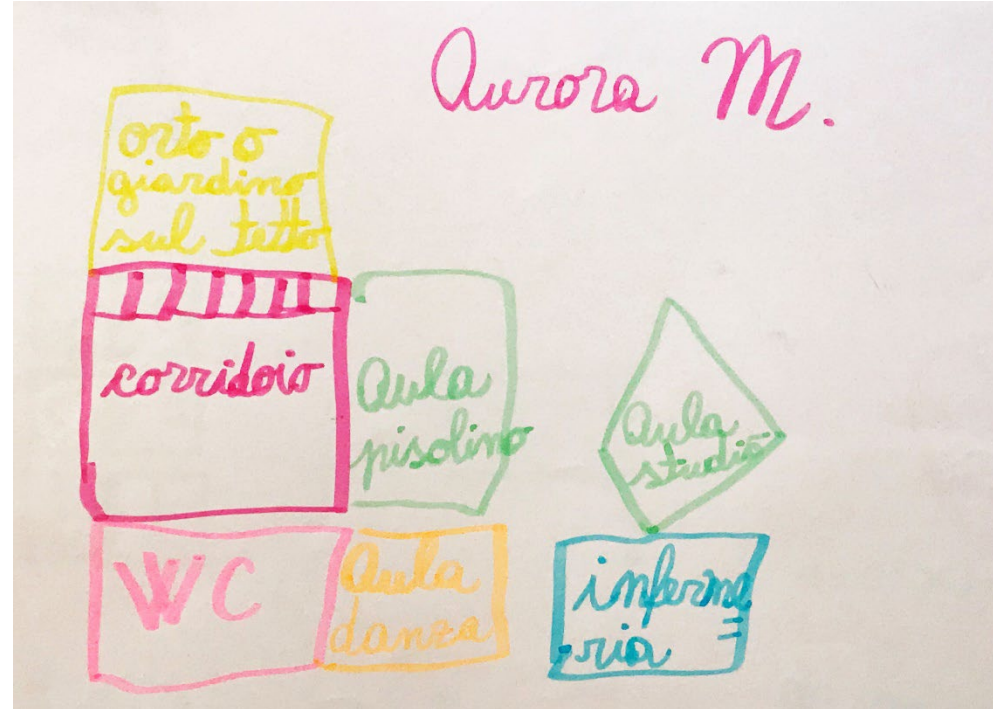 Aurora M.
orto o
giardino
sul tetto
corridoio
Aula
pisolino
Aula
studio
WC
Aula
danza
inferme
ria